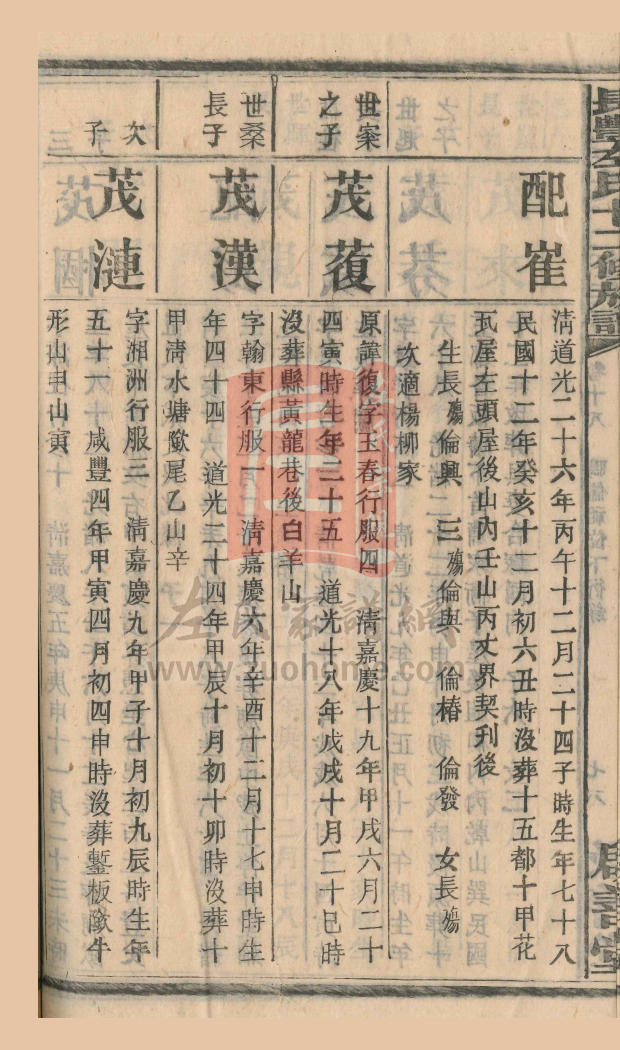 長豐左氏十二修族譜
卷十八
七六
配崔
清道光二十六年丙午十二月二十四子時生年七十八
民國十二年癸亥十二月初六丑時沒葬十五都十甲花
瓦屋左頭屋後山內壬山丙丈界契刋後
生長殤倫興 三殤倫與 倫椿 倫發 女長殤
次適楊柳家
世案
之子
茂蕧
原諱復字玉春行服四 清嘉慶十九年甲戌六月二十
四寅時生年二十五 道光十八年戊戌十月二十巳時
沒葬縣黃龍巷後白羊山
世桑
長子
茂漢
字翰東行服一 清嘉慶六年辛酉十二月十七申時生
年四十四 道光二十四年甲辰十月初十卯時沒葬十
甲清水塘㘰尾乙山辛
次
子
茂漣
字湘洲行服三 清嘉慶九年甲子十月初九辰時生年
五十一 咸豐四年甲寅四月初四申時沒葬鏨板㘰牛
形山申山寅
左氏家譜網
www.zuohome.com